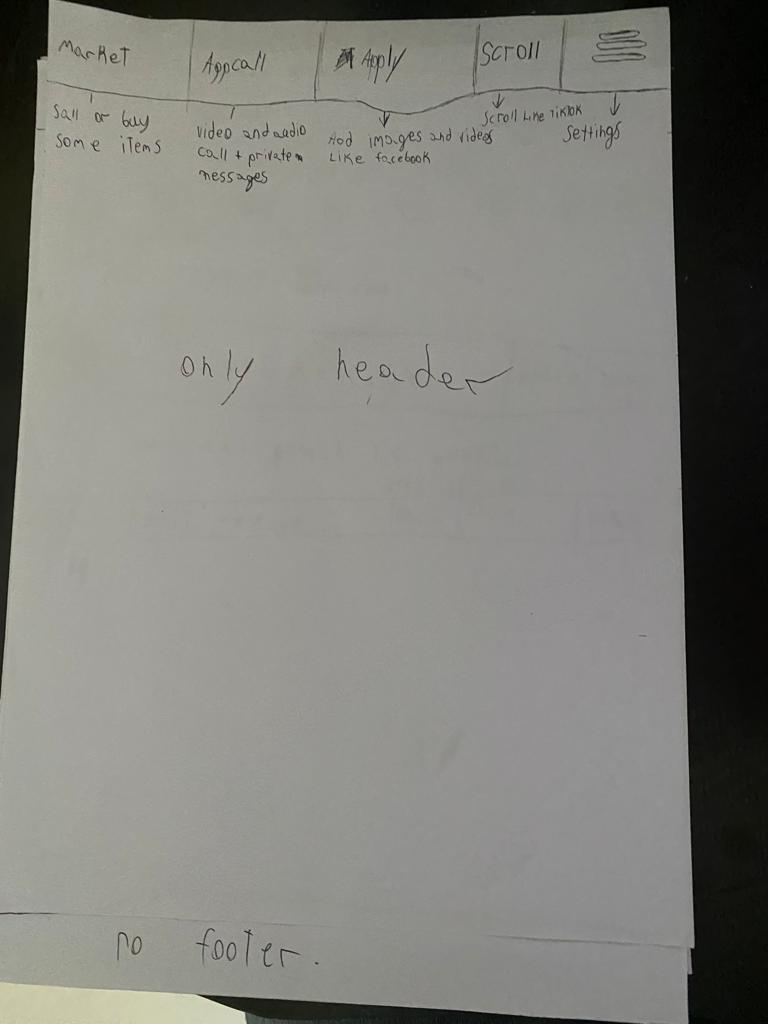 Market
Appcall
Apply
Scroll
Sall or buy
some items
video and audio
call + private
messages
Add images and videos
Like facebook
Scroll Like TikTok
Settings
only header
no footer.